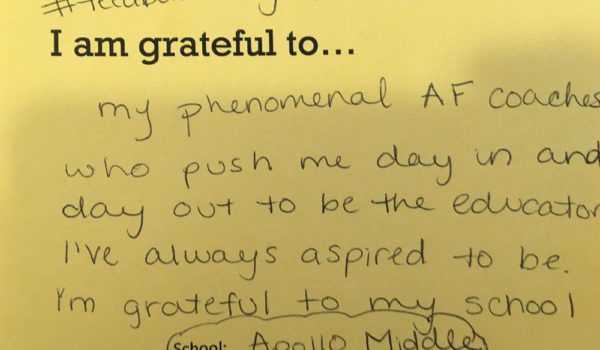 I am grateful to...
my phenomenal AF coaches
who push me day in and
day out to be the educator
I've always aspired to be.
I'm grateful to my school
School: Apollo Middle